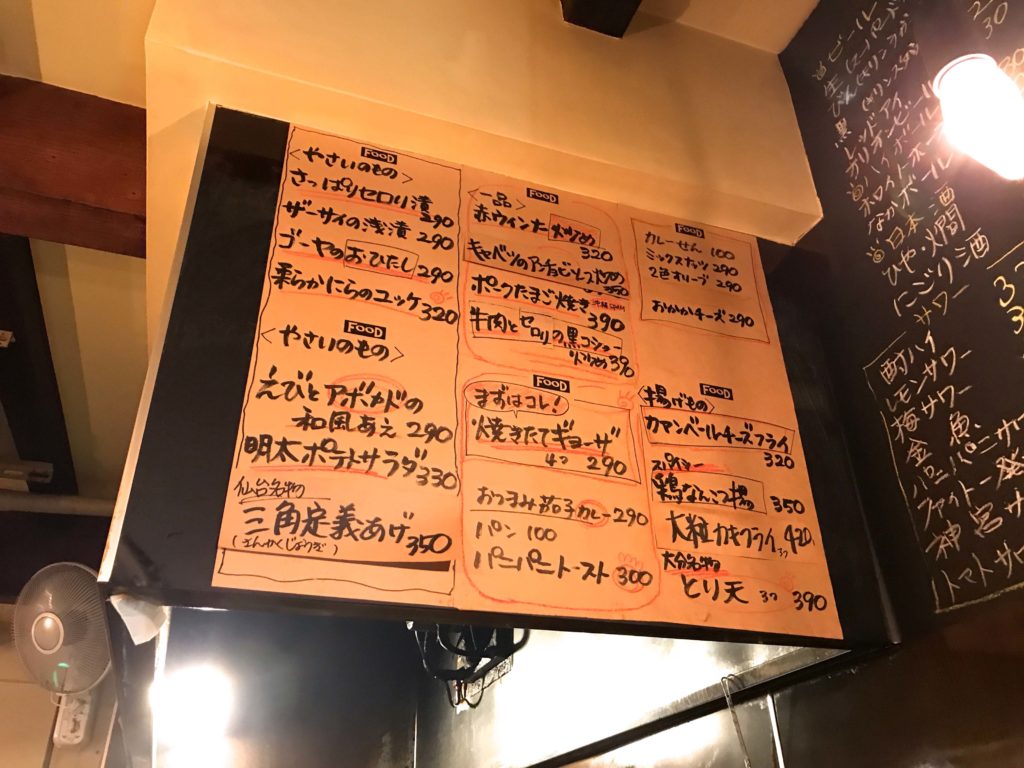 FOOD
<やさいのもの>
さっぱりセロリ漬 290
ザーサイの浅漬 290
ゴーヤのおひたし 290
柔らかにらのユッケ 320
FOOD
<やさいのもの>
えびとアボカドの
和風あえ 290
明太ポテトサラダ 330
仙台名物
三角定義あげ 350
(さんかくじょうぎ)
FOOD
<一品>
赤ウインナー炒め
320
キャベツのアンチョビ
ポークたまご焼き
390
牛肉とセロリの黒コショー
炒め 390
FOOD
まずはコレ!
焼きたてギョーザ
4コ 290
おつまみ茄子カレー 290
パン 100
パニパニトースト 300
FOOD
カレーせん 100
ミックスナッツ 290
2色オリーブ 290
おかかチーズ 290
FOOD
<揚げもの>
カマンベールチーズフライ
320
スパイシー
鶏なんこつ揚
350
大粒カキフライ 3コ 420
大分名物
とり天 3コ 390
ビール
黒
レッドアイ
日本酒
ひや・燗
にごり酒
サワー
酎ハイ
レモンサワー
梅サワー
金魚
パニパニサワー
トマトサワー